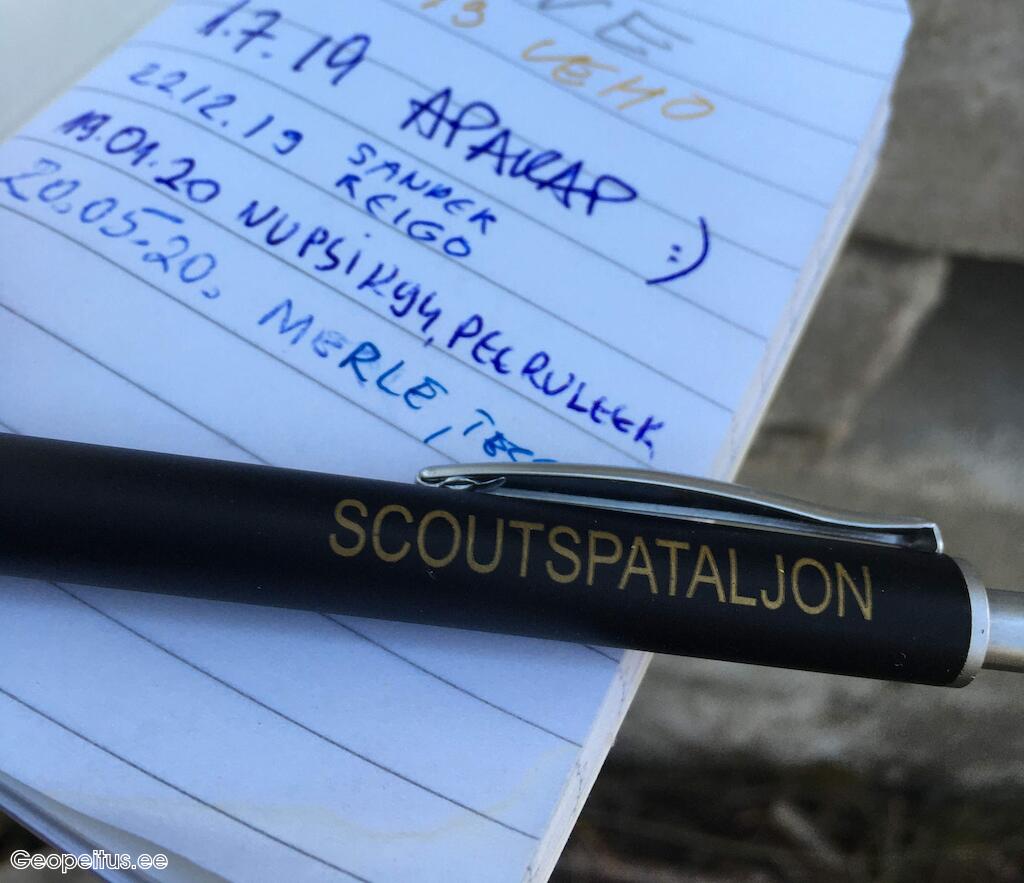 VE
19 VEMO
1.7.19 APAKAP :)
22.12.19 SANDER
REIGO
19.01.20 NUPSIKY4, PEERULEEK
20.05.20. MERLE,
SCOUTSPATALJON
Geopeitus.ee